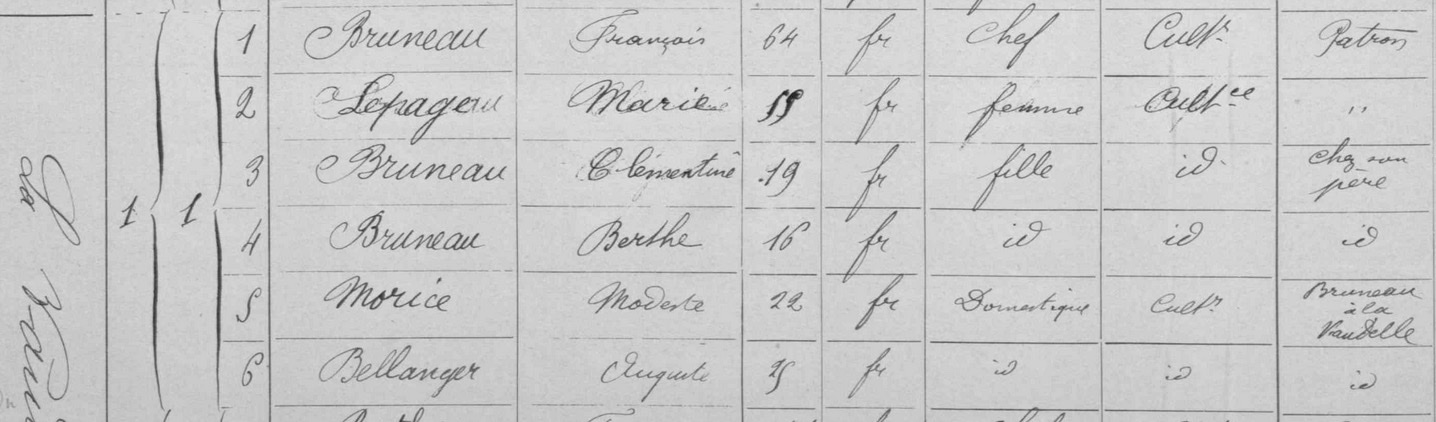 1 Bruneau François 64 fr chef Cultr Patron
2 Lepage Marie 55 fr femme Cultce "
3 Bruneau Clémentine 19 fr fille id chez son père
1 1 4 Bruneau Berthe 16 fr id id id
5 Morice Modeste 22 fr Domestique Cultr Bruneau à la Vaudelle
6 Bellanger Auguste 25 fr id id id
La